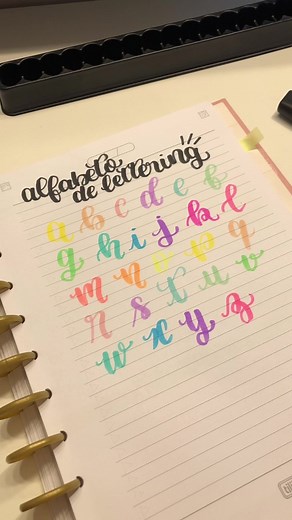 alfabeto
de lettering
a b c d e f
g h i j k l
m n o p q
r s t u v
w x y z